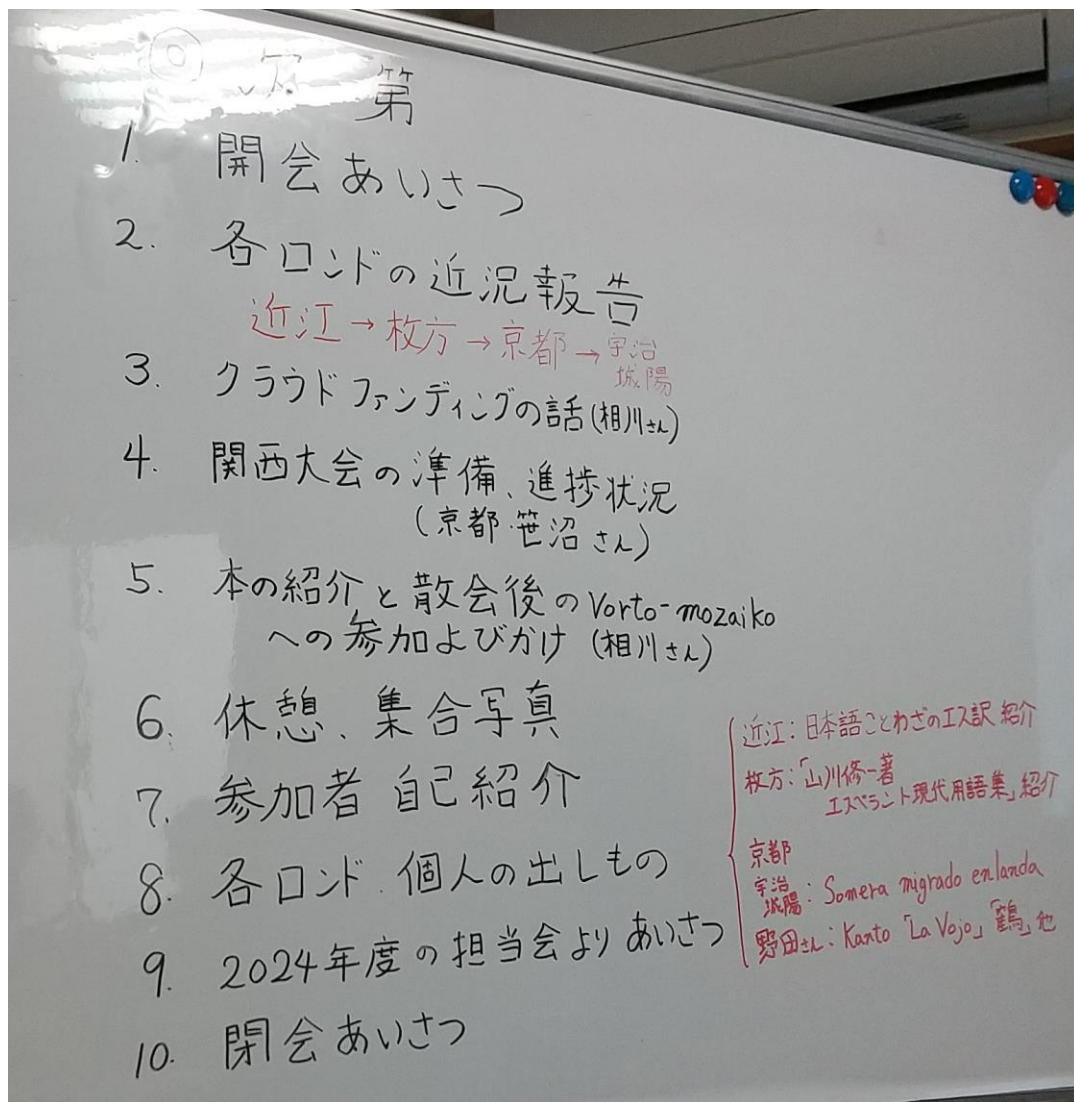 ◎ 次 第
1. 開会あいさつ
2. 各ロンドの近況報告
近江→枚方→京都→宇治
城陽
3. クラウドファンディングの話(相川さん)
4. 関西大会の準備、進捗状況
(京都・笹沼さん)
5. 本の紹介と散会後のVorto-mozaiko
への参加よびかけ(相川さん)
6. 休憩、集合写真
7. 参加者 自己紹介
8. 各ロンド、個人の出しもの
9. 2024年度の担当会よりあいさつ
10. 閉会あいさつ
近江:日本語ことわざのエス訳 紹介
枚方:「山川修一著
エスペラント現代用語集」紹介
京都
宇治
城陽:Somera migrado enlanda
野田さん:Kanto「La Vojo」「鶴」他